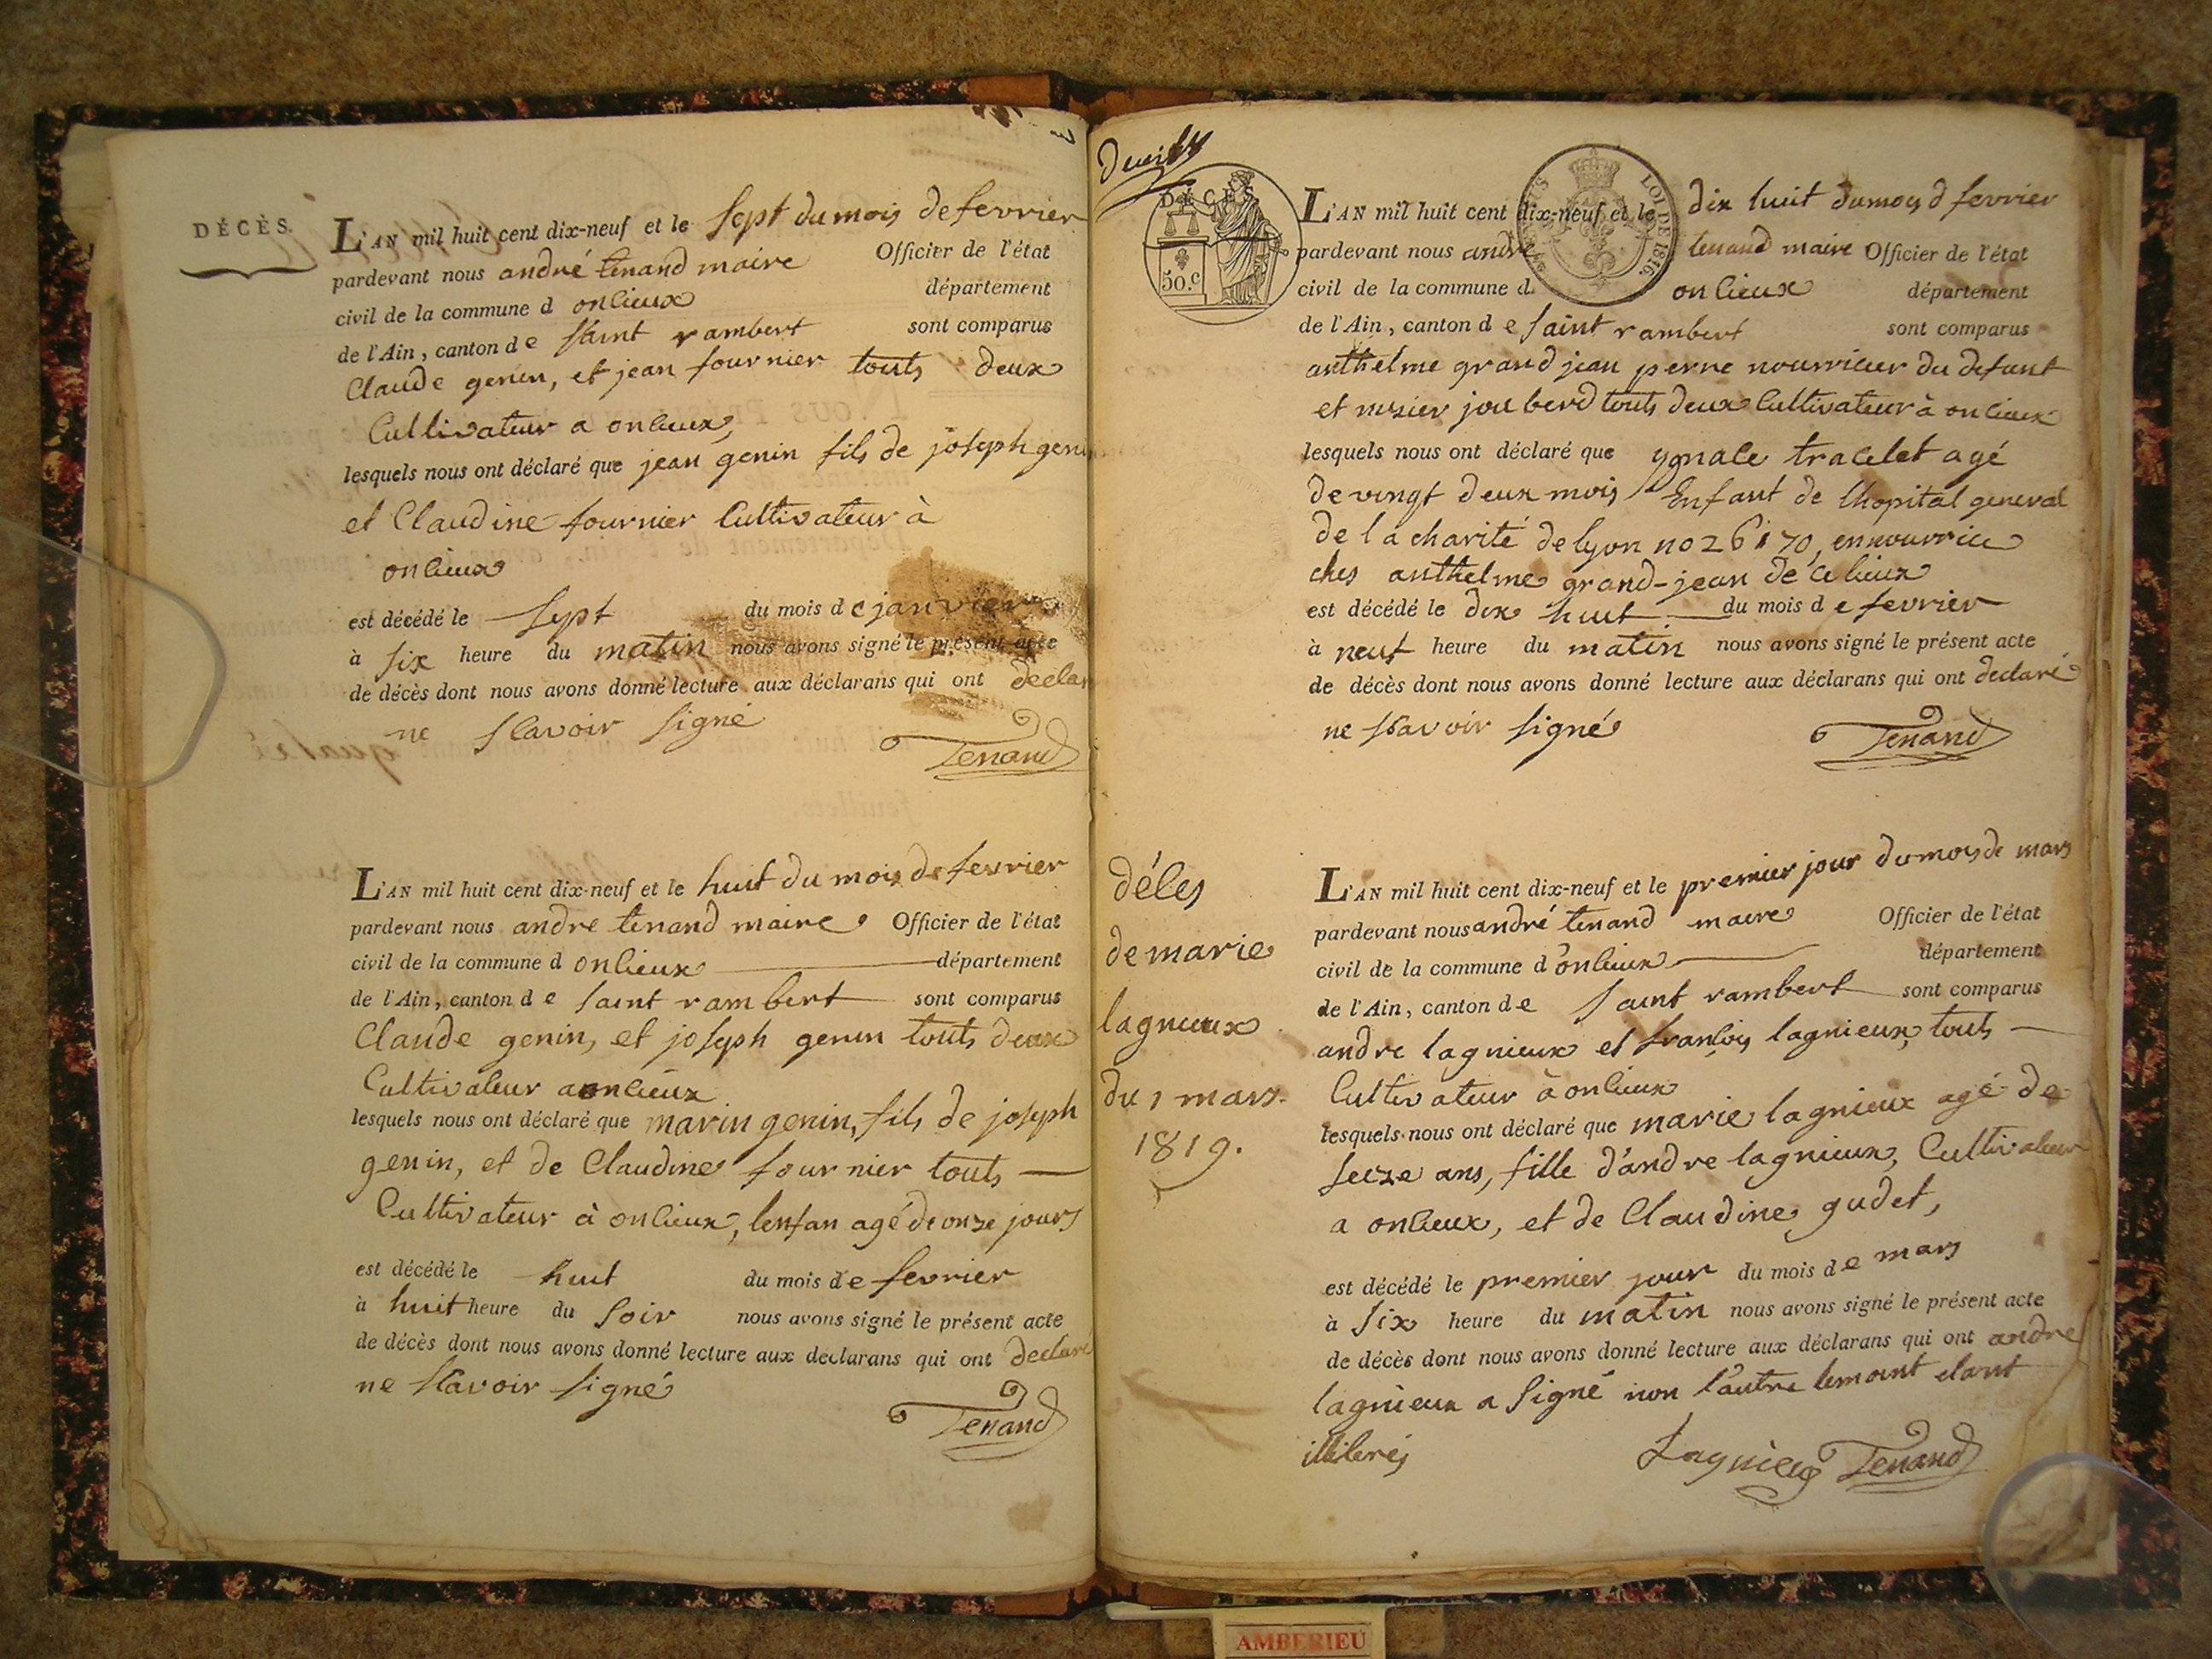 DÉCÈS.
L'AN mil huit cent dix-neuf et le sept du mois de fevrier
pardevant nous andré tenand maire Officier de l'état
civil de la commune d onlieux département
de l'Ain, canton de saint rambert sont comparus
Claude genin, et jean fournier touts deux
Cultivateur a onlieux,
lesquels nous ont déclaré que jean genin fils de joseph geni
et Claudine fournier Cultivateur à
onlieux
est décédé le sept du mois de janvier
à six heure du matin nous avons signé le présent acte
de décès dont nous avons donné lecture aux déclarans qui ont declar
ne scavoir signé
Tenand
L'AN mil huit cent dix-neuf et le huit du mois de fevrier
pardevant nous andre tenand maire Officier de l'état
civil de la commune d onlieux département
de l'Ain, canton de saint rambert sont comparus
Claude genin, et joseph genin touts deux
Cultivateur a onlieux
lesquels nous ont déclaré que marin genin, fils de joseph
genin, et de Claudine fournier touts
Cultivateur à onlieux, lenfan agé de onze jours
est décédé le huit du mois de fevrier
à huit heure du soir nous avons signé le présent acte
de décès dont nous avons donné lecture aux declarans qui ont declaré
ne scavoir signé
Tenand
DÉCÈS
50.c
LOI DE 1816
L'AN mil huit cent dix-neuf et le dix huit du moy d fevrier
pardevant nous andre tenand maire Officier de l'état
civil de la commune d onlieux département
de l'Ain, canton de saint rambert sont comparus
anthelme grand jean perre nourricier du defunt
et nisier jouberd touts deux Cultivateur à onlieux
lesquels nous ont déclaré que ygnace tracelet agé
de vingt deux mois Enfant de lhopital general
de la charité de lyon no 26170, en nourrice
ches anthelme grand-jean de ce lieux
est décédé le dix huit du mois de fevrier
à neuf heure du matin nous avons signé le présent acte
de décès dont nous avons donné lecture aux déclarans qui ont declaré
ne scavoir signé
Tenand
déces
de marie
lagnieux
du 1 mars
1819.
L'AN mil huit cent dix-neuf et le premier jour du moy de mars
pardevant nous andré tenand maire Officier de l'état
civil de la commune d'onlieux département
de l'Ain, canton de saint rambert sont comparus
andre lagnieux et françois lagnieux, touts
Cultivateur à onlieux
lesquels nous ont déclaré que marie lagnieux agé de
seize ans, fille d'andre lagnieux, Cultivateur
a onlieux, et de Claudine gudet,
est décédé le premier jour du mois de mars
à six heure du matin nous avons signé le présent acte
de décès dont nous avons donné lecture aux déclarans qui ont andre
lagnieux a signé non l'autre temoint etant
illiterés
Lagnieux Tenand
AMBERIEU